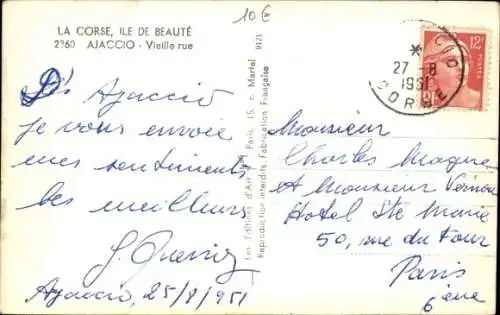 LA CORSE, ILE DE BEAUTÉ
2360 AJACCIO - Vieille rue
10€
D'Ajaccio
je vous envoie
mes sentiments
les meilleurs
Ajaccio, 25/8/1951
Les Editions d'Art Paris, (5, r. Martel 9121
Reproduction Interdite, Fabrication Française
27 - 8
1951
CORSE
12F
POSTES
Monsieur
Charles
et Monsieur Vernon
Hotel Ste Marie
50, rue du Four
Paris
6ème